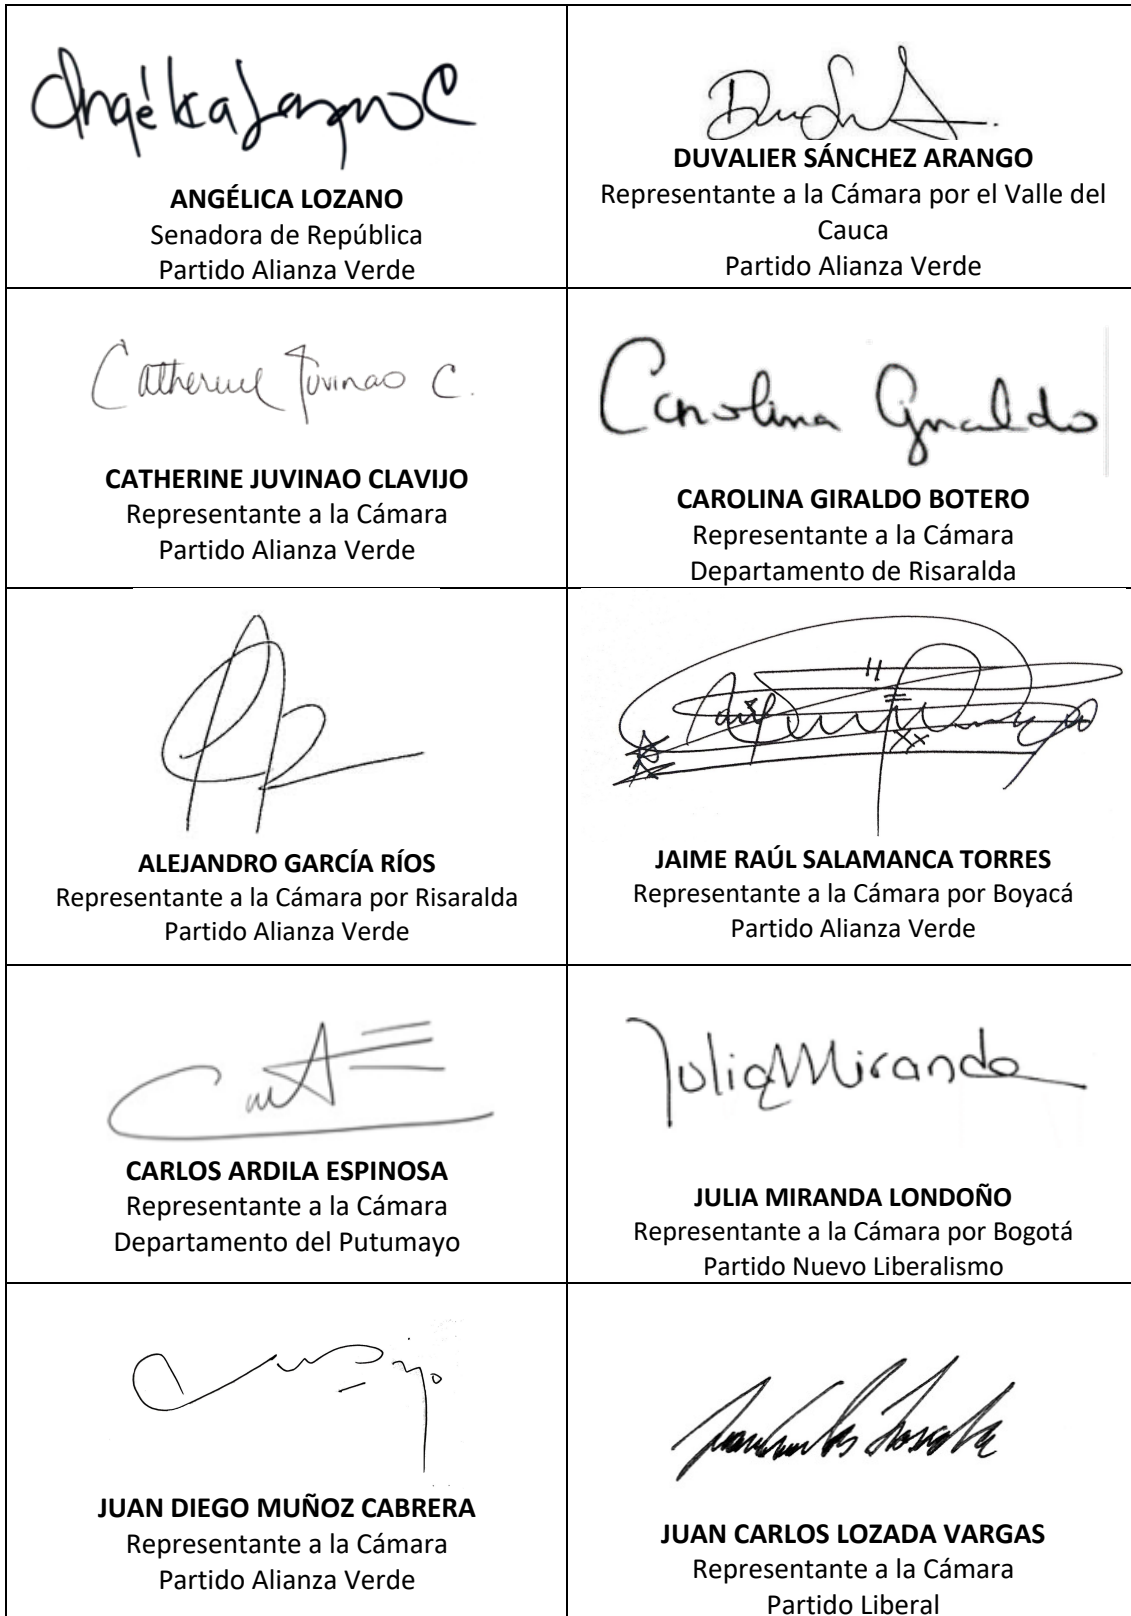 Angélica Lozano C
ANGÉLICA LOZANO
Senadora de República
Partido Alianza Verde
DUVALIER SÁNCHEZ ARANGO
Representante a la Cámara por el Valle del
Cauca
Partido Alianza Verde
Catherine Juvinao C.
CATHERINE JUVINAO CLAVIJO
Representante a la Cámara
Partido Alianza Verde
Carolina Giraldo
CAROLINA GIRALDO BOTERO
Representante a la Cámara
Departamento de Risaralda
ALEJANDRO GARCÍA RÍOS
Representante a la Cámara por Risaralda
Partido Alianza Verde
JAIME RAÚL SALAMANCA TORRES
Representante a la Cámara por Boyacá
Partido Alianza Verde
CARLOS ARDILA ESPINOSA
Representante a la Cámara
Departamento del Putumayo
Julia Miranda
JULIA MIRANDA LONDOÑO
Representante a la Cámara por Bogotá
Partido Nuevo Liberalismo
JUAN DIEGO MUÑOZ CABRERA
Representante a la Cámara
Partido Alianza Verde
Juan Carlos Losada
JUAN CARLOS LOZADA VARGAS
Representante a la Cámara
Partido Liberal